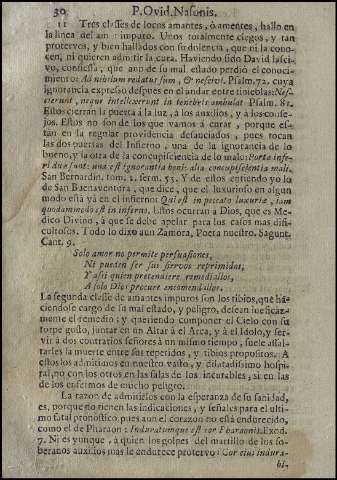 30 P. Ovid. Nasonis.
11 Tres classes de locos amantes, ò amentes, hallo en
la linea del amor impuro. Unos totalmente ciegos, y tan
protervos, y bien hallados con su dolencia, que ni la cono-
cen, ni quieren admitir la cura. Haviendo sido David lasci-
vo, confiessa, que aun de su mal estado perdiò el conoci-
miento: Ad nihilum redactus sum, & nescivi. Psalm. 72. cuya
ignorancia expresso despues en el andar entre tinieblas: Nes-
cierunt, neque intellexerunt in tenebris ambulat Psalm. 81.
Estos cierran la puerta à la luz, à los auxilios, y à los conse-
jos. Estos no son de los que vamos à curar, porque es-
tàn en la regular providencia desauciados, pues tocan
las dos puertas del Infierno, una de la ignorancia de lo
bueno, y la otra de la concupisciencia de lo malo: Porta infe-
ri duæ sunt: una est ignorantia boni: alia concupiscientia mali.
San Bernardin. tom. 2. serm. 53. Y de estos entiendo yo lo
de San Buenaventura, que dice, que el luxurioso en algun
modo està yà en el infierno: Qui est in peccato luxuriæ, iam
quodammodo est in inferno. Estos ocurran à Dios, que es Me-
dico Divino, à que se debe apelar para los casos mas difi-
cultosos. Todo lo dixo aun Zamora, Poeta nuestro. Sagunt.
Cant. 9.
Solo amor no permite persuasiones,
Ni pueden ser sus siervos reprimidos,
Y assi quien pretendiere remediallos,
A solo Dios procure encomendallos.
La segunda classe de amantes impuros son los tibios, que ha-
ciendose cargo de su mal estado, y peligro, desean ineficaz-
mente el remedio; y queriendo componer el Cielo con su
torpe gusto, juntar en un Altar à el Arca, y à el Idolo, y ser-
vir à dos contrarios señores à un mismo tiempo, suele assal-
tarles la muerte entre sus repetidos, y tibios propositos. A
estos los admitimos en nuestro vasto, y dilatadissimo hospi-
tal, no con los otros en las salas de los incurables, si en las
de los enfermos de mucho peligro.
La razon de admitirlos con la esperanza de su sanidad,
es, porque no tienen las indicaciones, y señales para el ulti-
mo fatal pronostico, pues aun el corazon no està endurecido,
como el de Pharaon: Induratumque est cor Pharaonis. Exod.
7. Ni es yunque, à quien los golpes del martillo de los so-
beranos auxilios mas le endurece protervo: Cor eius indura-
bi-